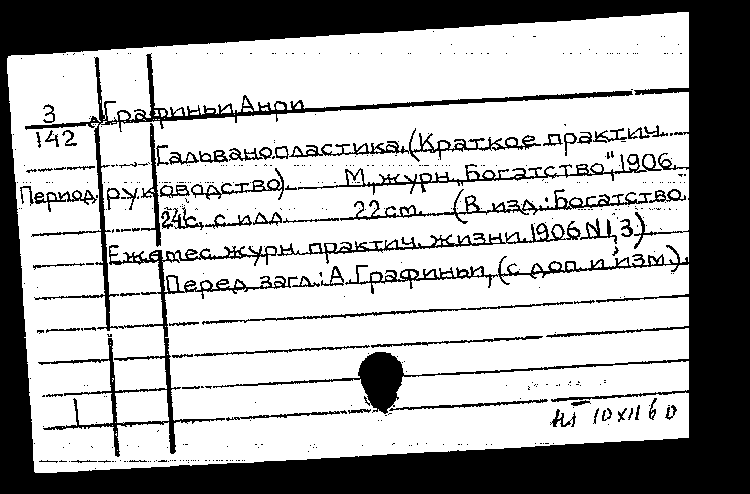 З Графиньи, Анри
142
Гальванопластика. (Краткое практич.
Период. руководство). М., журн. "Богатство", 1906.
24с., с илл. 22 cm. (В изд.: Богатство.
Ежемес. журн. практич. жизни. 1906 N 1, 3)
Перед загл.: А. Графиньи, (с доп. и изм.).
1